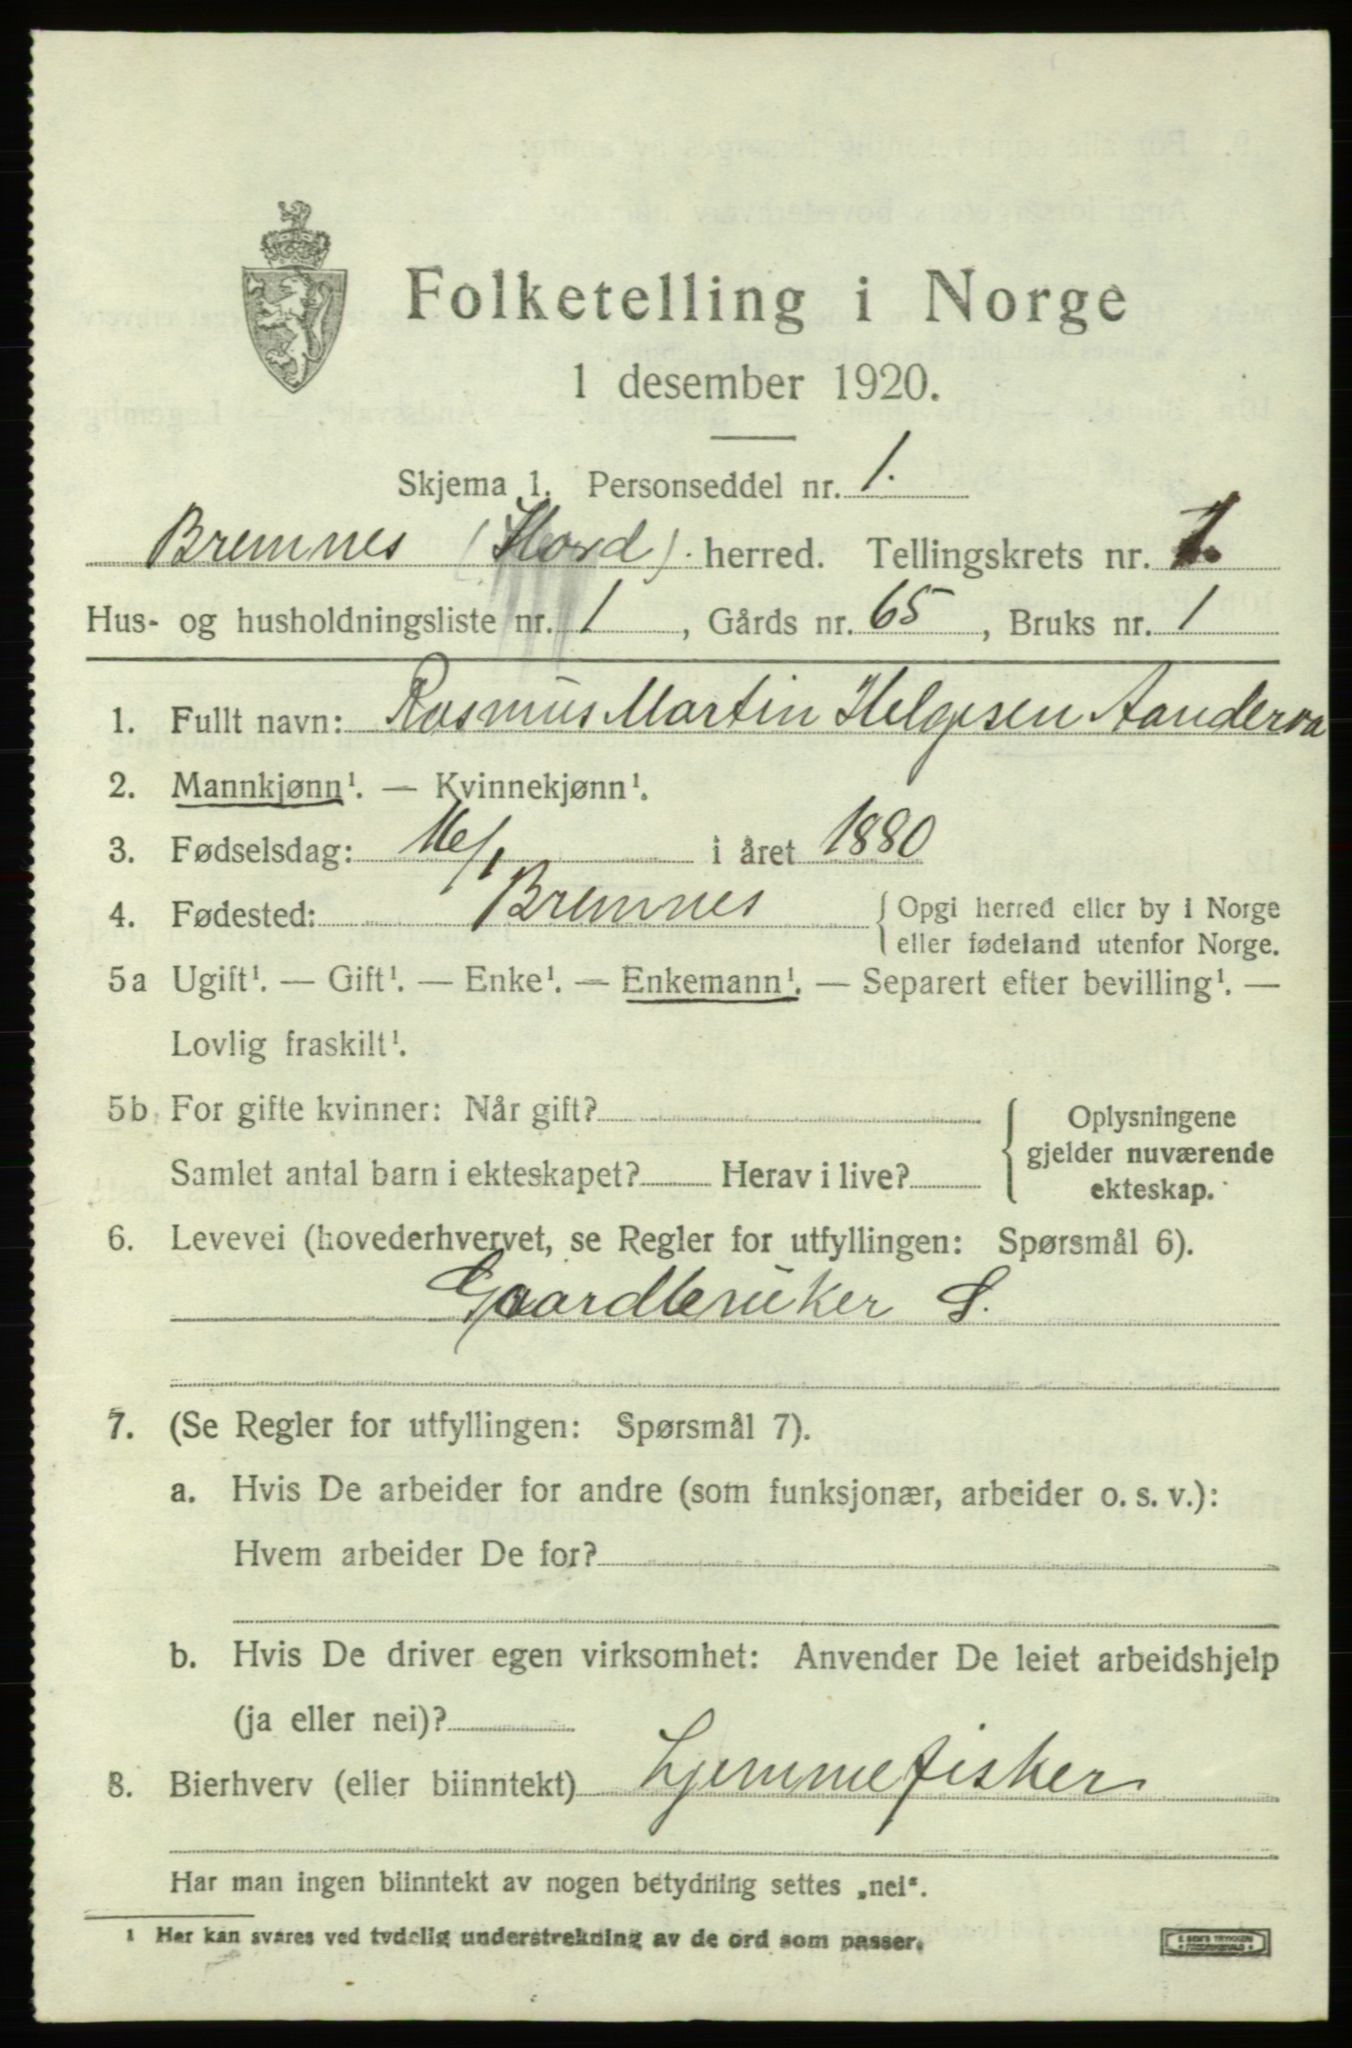 Folketelling i Norge
1 desember 1920.
Skjema 1. Personseddel nr. 1.
Bremnes (Hord). herred. Tellingskrets nr. 1.
Hus- og husholdningsliste nr. 1, Gårds nr. 65, Bruks nr. 1
1. Fullt navn: Rasmus Martin Helgesen Aanderaa
2. Mannkjønn¹. — Kvinnekjønn¹.
3. Fødselsdag: 16/1 i året 1880
4. Fødested: Bremnes { Opgi herred eller by i Norge
eller fødeland utenfor Norge.
5a Ugift¹. — Gift¹. — Enke¹. — Enkemann¹. — Separert efter bevilling¹. —
Lovlig fraskilt¹.
5b For gifte kvinner: Når gift?
Samlet antal barn i ekteskapet? Herav i live?
{ Oplysningene
gjelder nuværende
ekteskap.
6. Levevei (hovederhvervet, se Regler for utfyllingen: Spørsmål 6).
Gaardbruker S.
7. (Se Regler for utfyllingen: Spørsmål 7).
a. Hvis De arbeider for andre (som funksjonær, arbeider o. s. v.):
Hvem arbeider De for?
b. Hvis De driver egen virksomhet: Anvender De leiet arbeidshjelp
(ja eller nei)?
8. Bierhverv (eller biinntekt) Hjemmefisker
Har man ingen biinntekt av nogen betydning settes „nei“.
¹ Her kan svares ved tydelig understrekning av de ord som passer.